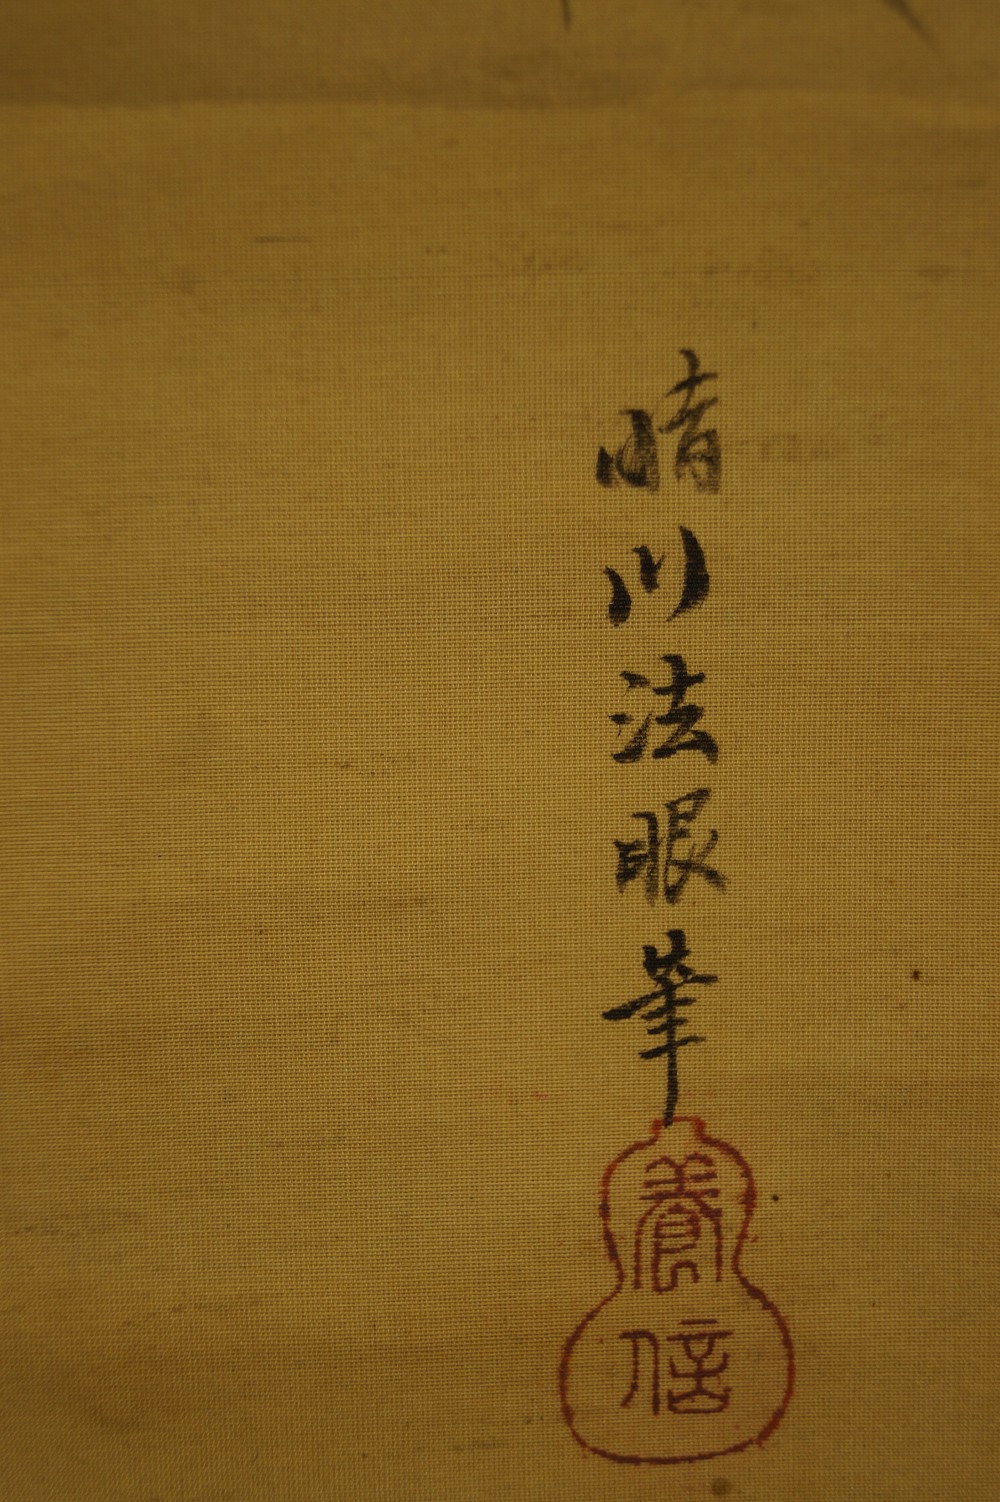 晴川法眼筆
養信